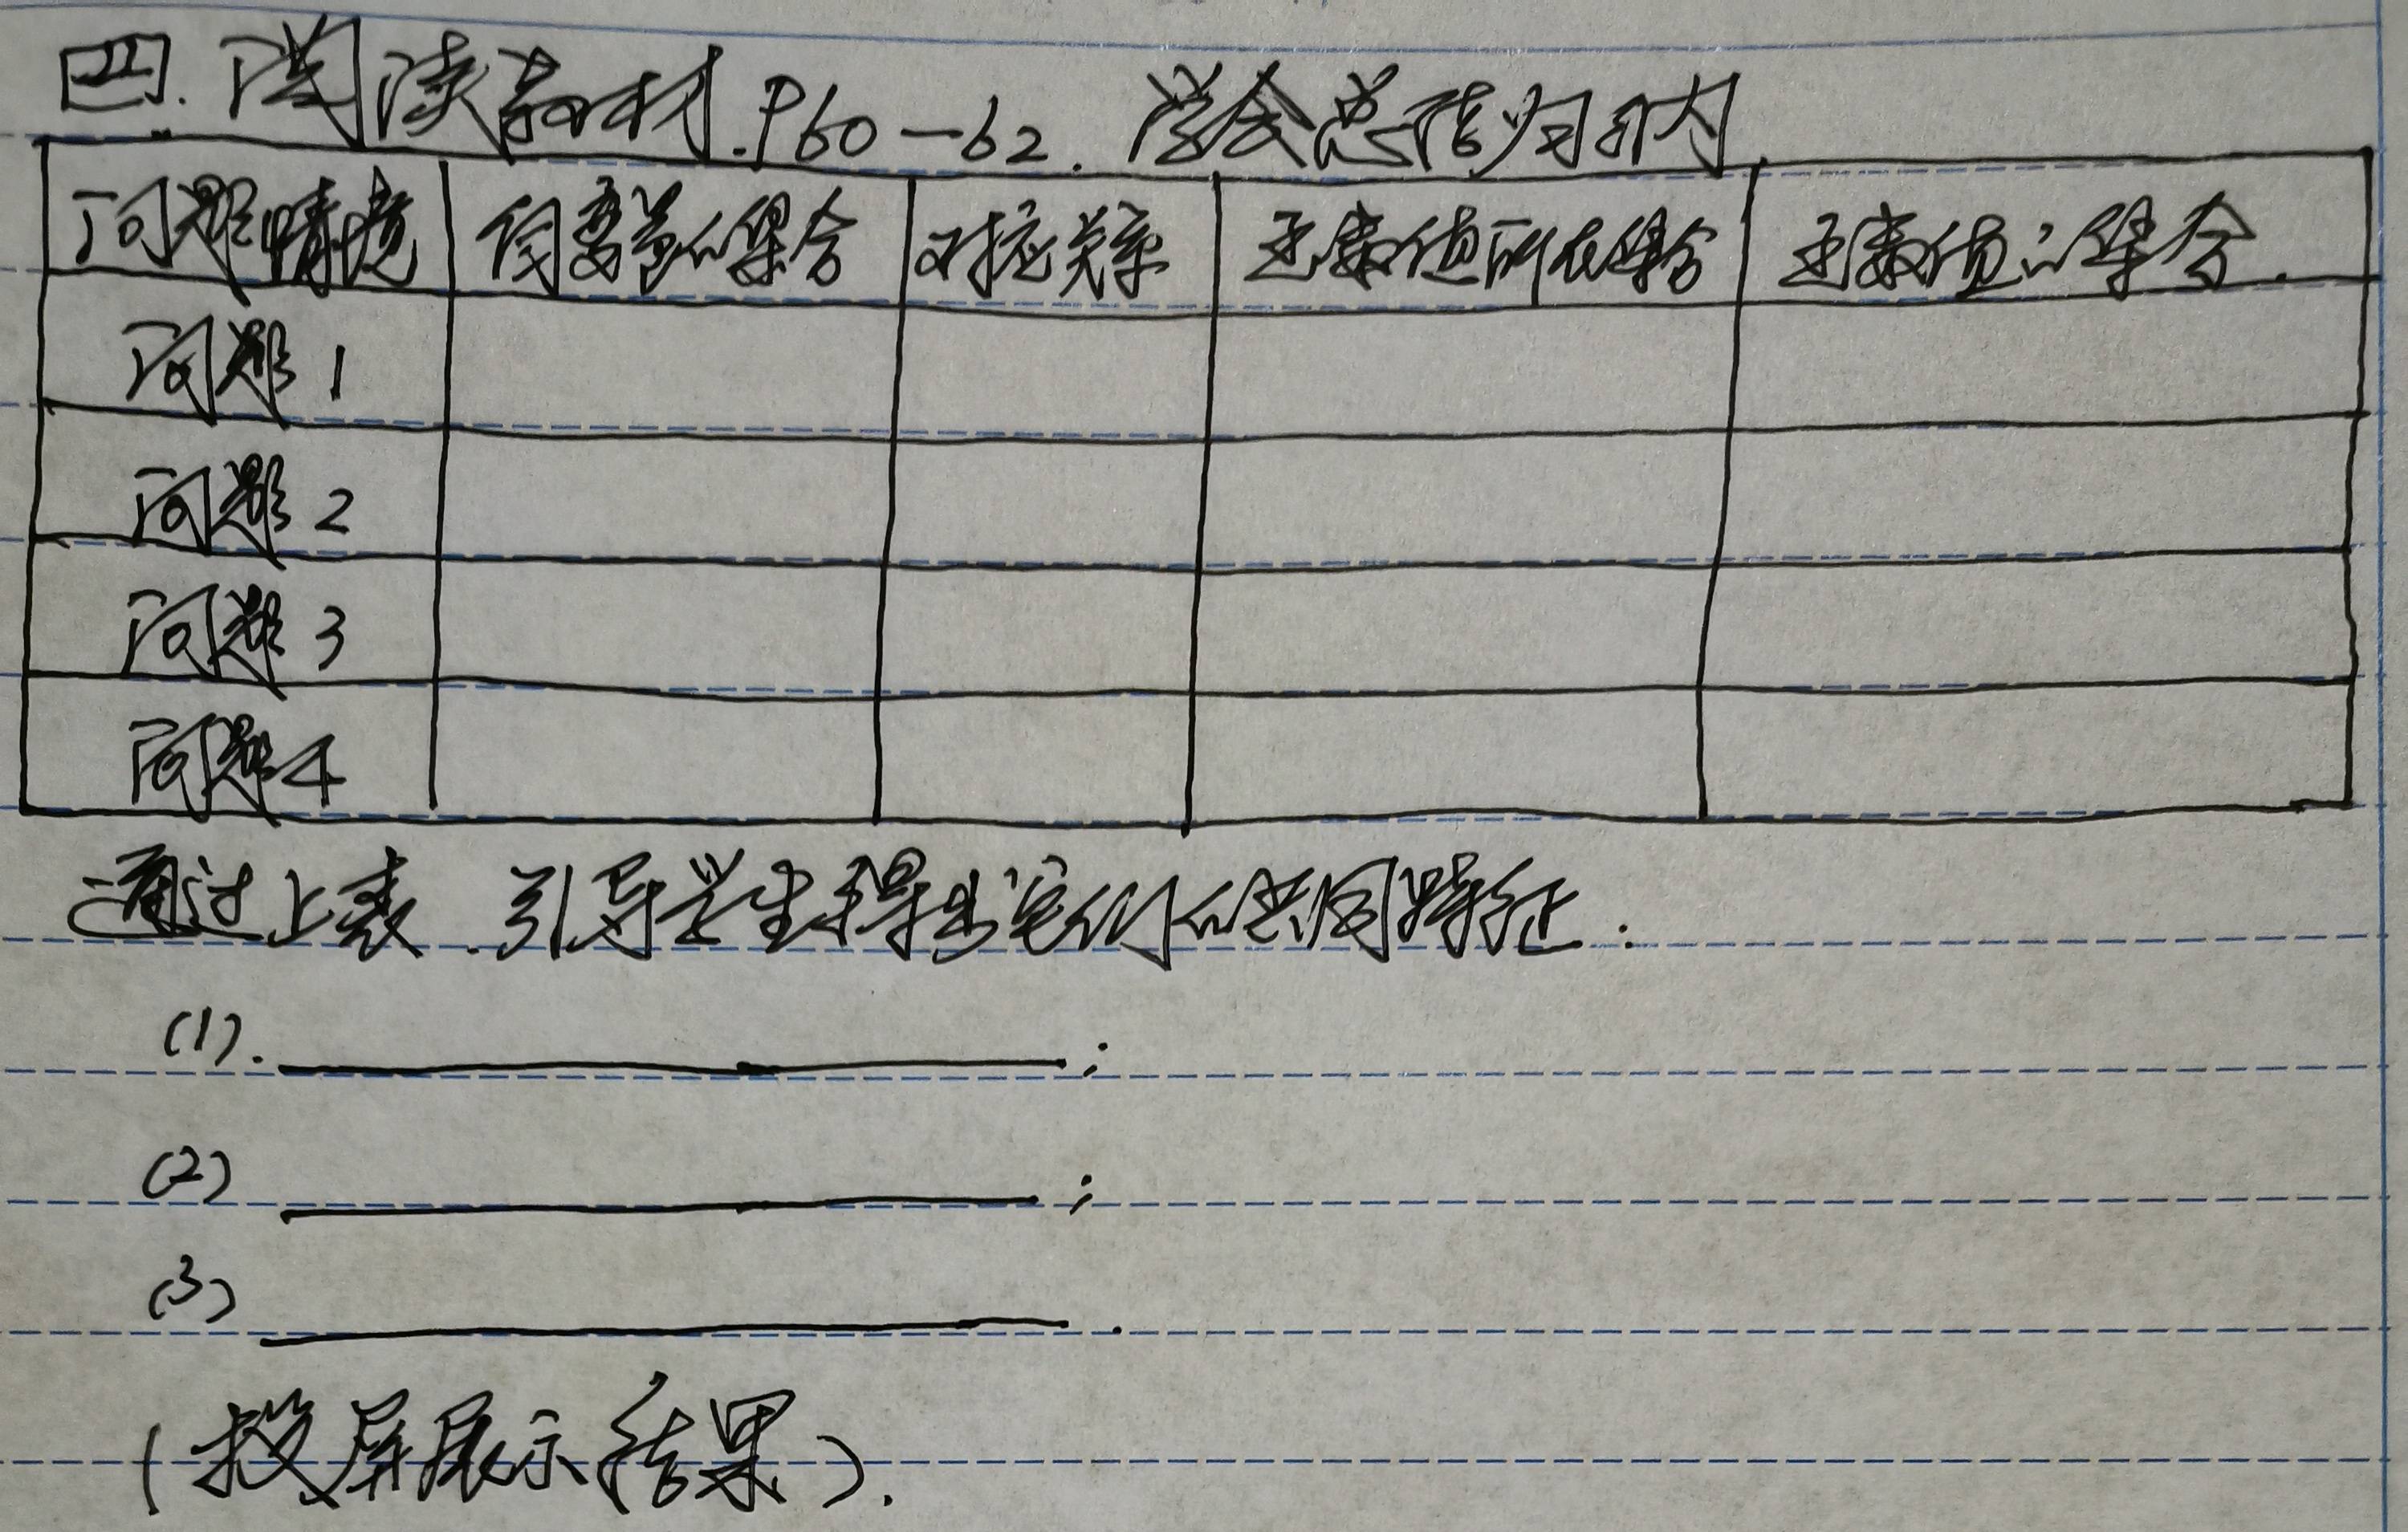 四.阅读教材.P60-62.学会总结归纳
问题情境 自变量的集合 对应关系 函数值所在集合 函数值的集合.
问题1
问题2
问题3
问题4
通过上表.引导学生得出它们的共同特征:
(1). ;
(2) ;
(3) .
(投屏展示结果).